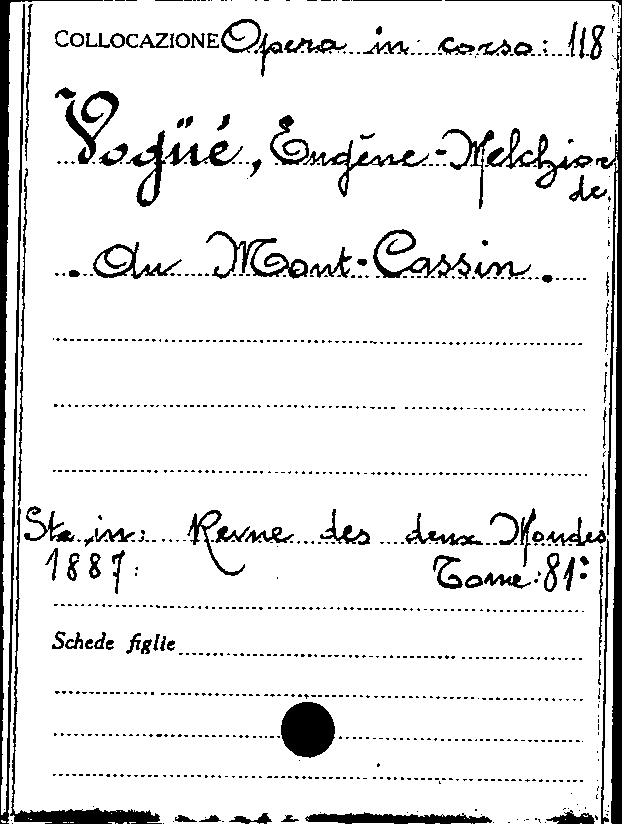 COLLOCAZIONE Opera in corso: 118
Vogüé, Eugène-Melchior
de
. Au Mont-Cassin.
Sta in: Revue des deux Mondes
1887: Tome: 81:
Schede figlie